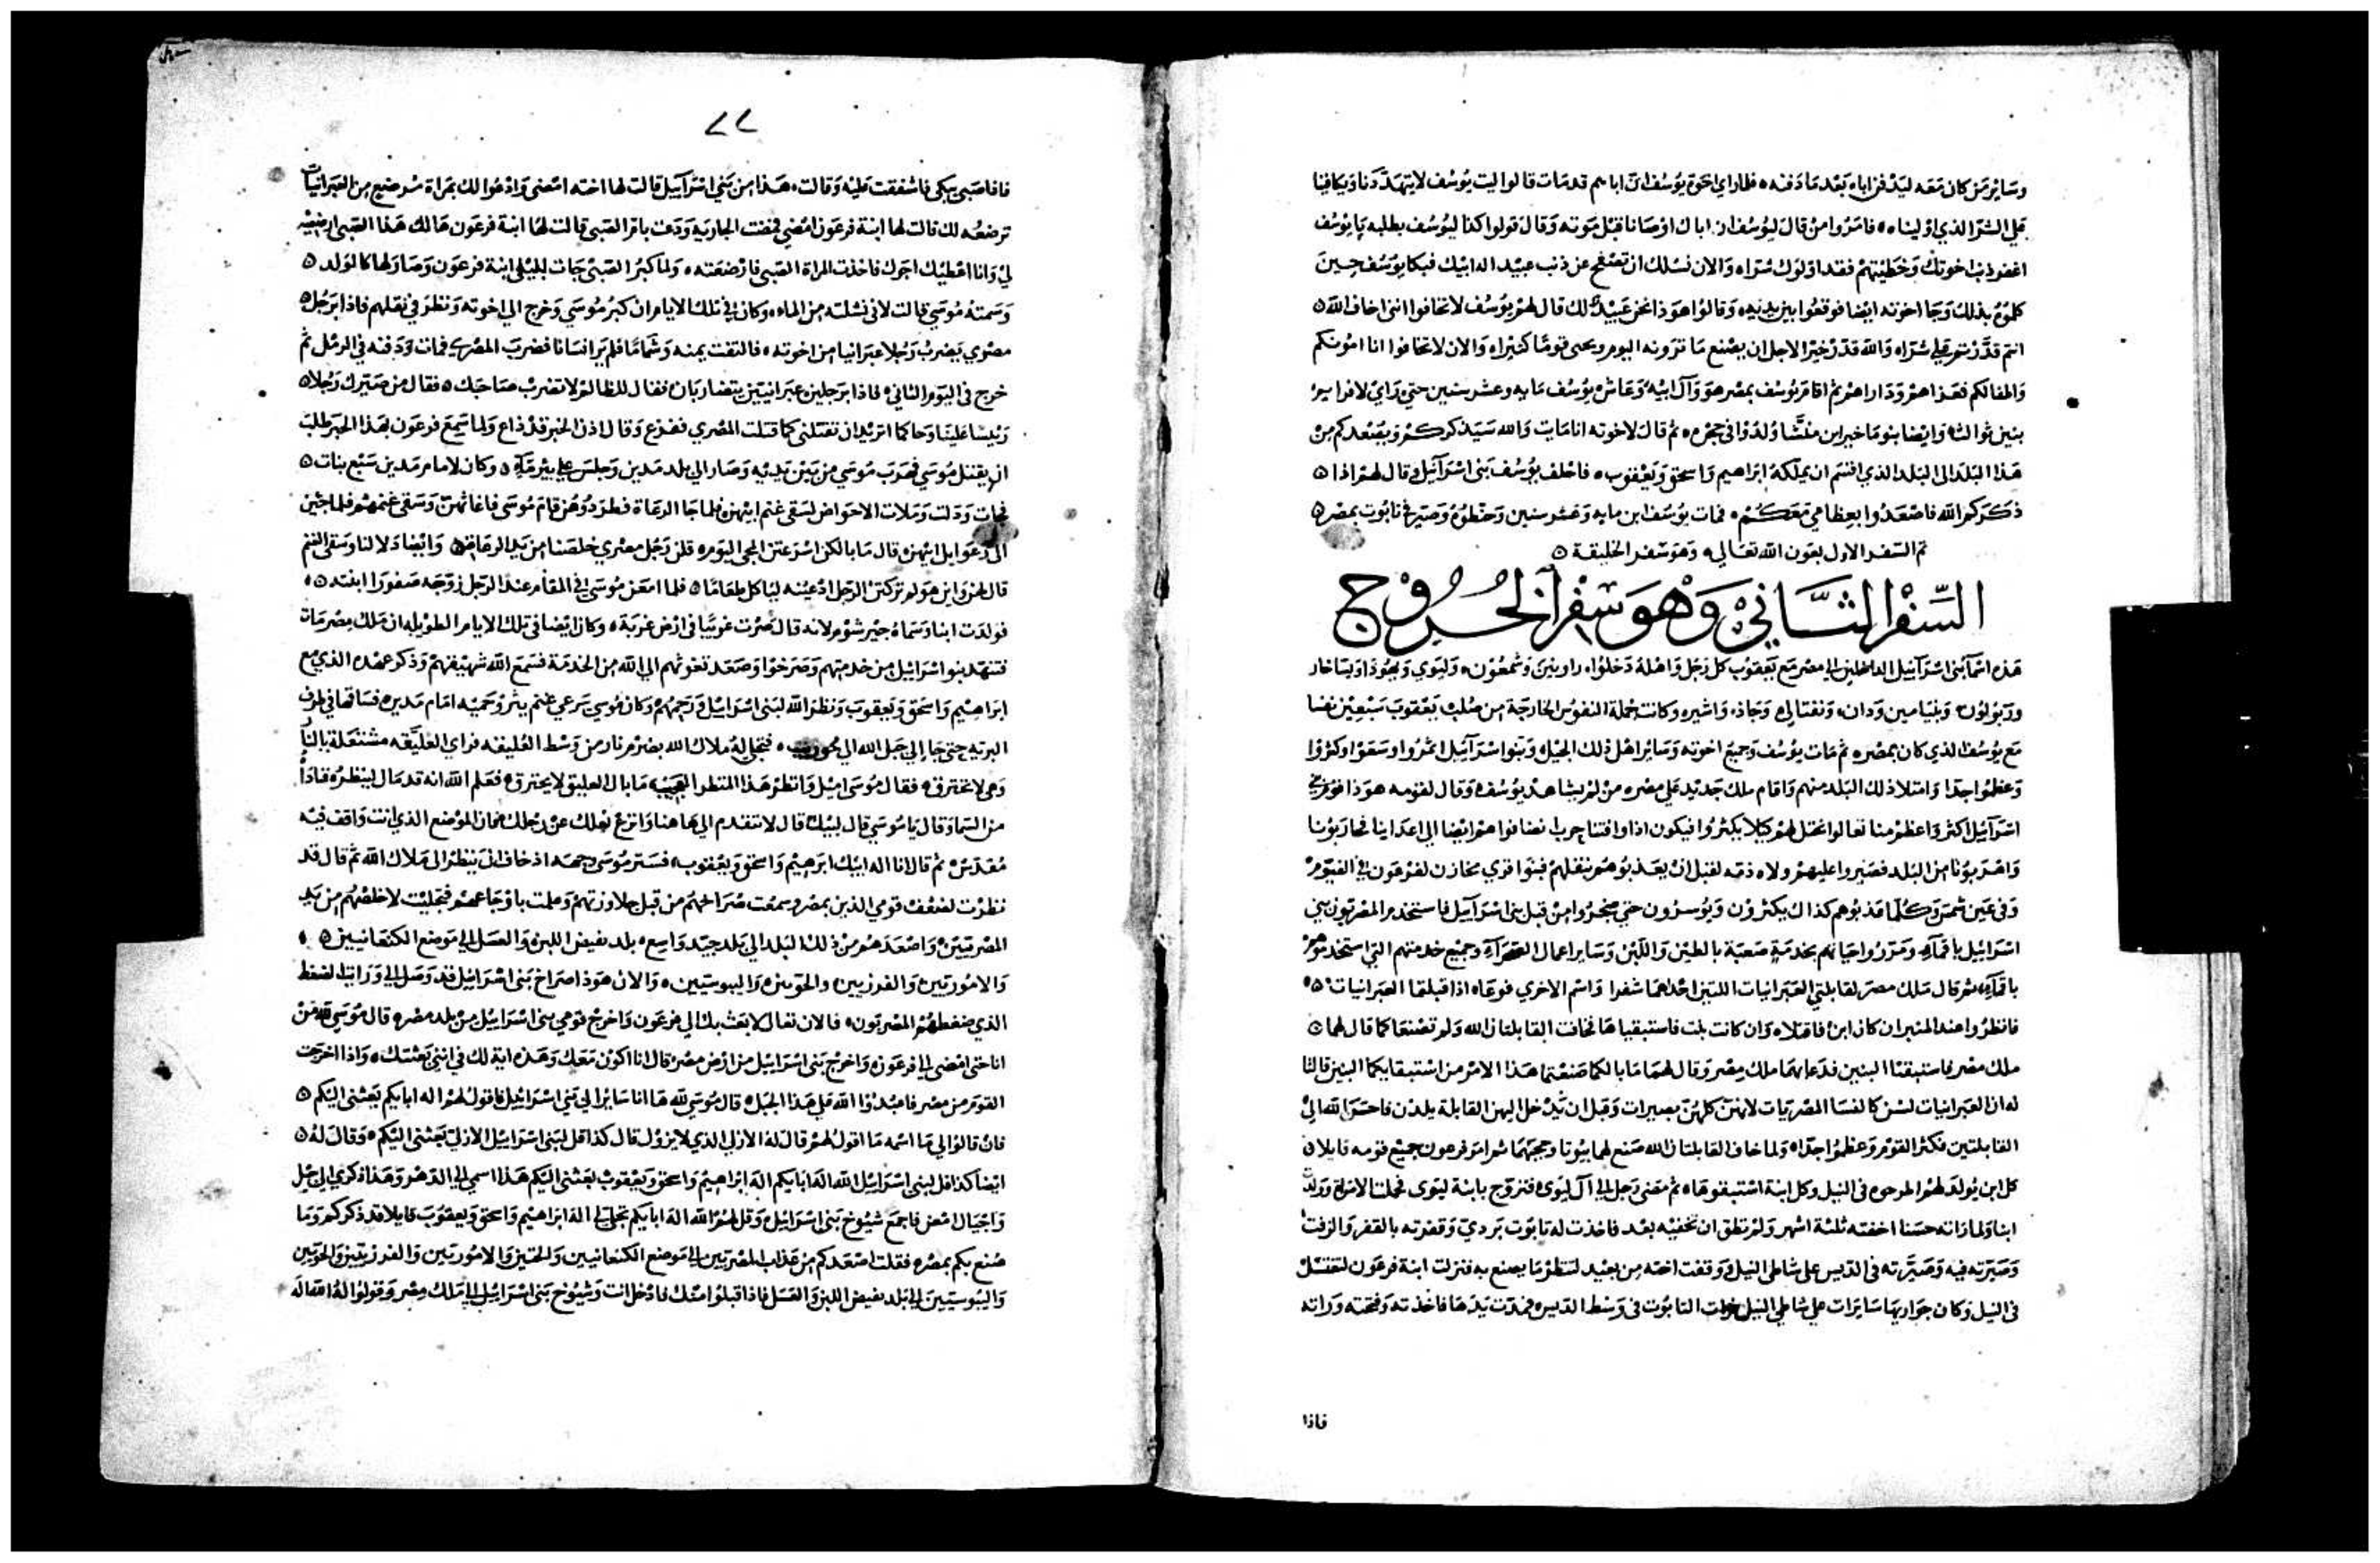 وساير من كان معه ليدفن اباه بعد ما دفنه فلما راي اخوة يوسف ان اباهم قد مات قالوا ليت يوسف لا يتهددنا ويكافينا
علي الشر الذي اوليناه فامروا من قال ليوسف ان اباك اوصانا قبل موته وقال قولوا كذا ليوسف بطلبه يا يوسف
اغفر ذنب اخوتك وخطيتهم فقد اولوك شراه والان نسلك ان تصفح عن ذنب عبيد اله ابيك فبكا يوسف حين
كلموه بذلك وجا اخوته ايضا فوقعوا بين يديه وقالوا هوذا نحن عبيدك لك قال لهم يوسف لا تخافوا انني اخاف الله
انتم قدرتم علي شراه والله قدر خيرا لاجل ان يصنع ما ترونه اليوم ويحيى قوما كثيراه والان لا تخافوا انا امونكم
واطفالكم فعزاهم وداراهم ثم اقام يوسف بمصر هو وآل ابيه وعاش يوسف مايه وعشر سنين حتي راي لافرايم
بنين ثوالث وايضا بنو ماخير ابن منشا ولدوا في حجره ثم قال لاخوته انا مايت والله سيذكركم ويصعدكم من
هذا البلد الى البلد الذي اقسم ان يملكه ابراهيم واسحق ويعقوب فاحلف يوسف بني اسرآييل وقال لهم اذا
ذكركم الله فاصعدوا بعظامي معكم فمات يوسف ابن مايه وعشر سنين وحنطوه وصير في تابوت بمصر
تم السفر الاول بعون الله تعالي وهو سفر الخليقة
السفر الثاني وهو سفر الخروج
هذه اسمآ بني اسرآييل الداخلين الي مصر مع يعقوب كل رجل واهله دخلوا راوبين وشمعون وليوي ويهوذا ويساخار
وزبولون وبنيامين ودان ونفتالي وجاذ واشير وكانت جملة النفوس الخارجة من صلب يعقوب سبعين نفسا
مع يوسف الذي كان بمصر ثم مات يوسف وجميع اخوته وساير اهل ذلك الجيل وبنوا اسرآييل اثمروا وسعوا وكثروا
وعظموا جدا وامتلا ذلك البلد منهم واقام ملك جديد علي مصر من لم يشاهد يوسف وقال لقومه هوذا قوم بني
اسرآييل اكثر واعظم منا تعالوا نحتل لهم كيلا يكثروا فيكون اذا وافتنا حرب انضافوا هم ايضا الي اعداينا فحاربونا
واخربونا من البلد فصيروا عليهم ولاه ذمه لقبل ان يعذبوهم بثقلهم فبنوا قري مخازن لفرعون في الفيوم
وفي عين شمس وكلما عذبوهم كذاك يكثرون ويوسرون حتي ضجروا من قبل بني اسرآييل فاستخدم المصريون بني
اسراييل بافمآه ومرروا حياتهم بخدمة صعبة بالطين واللبن وساير اعمال الصحرآ وجميع خدمتهم التي استخدموهم
باقمآه ثم قال ملك مصر لقابلتي العبرانيات اللتين احدهما شفرا واسم الاخري فوعاه اذا قبلتما العبرانيات
فانظروا عند المثبر ان كان ابن فاقتلاه وان كانت بنت فاستبقياها فخافت القابلتان الله ولم تصنعا كما قال لهما
ملك مصر فاستبقتا البنين فدعا بهما ملك مصر وقال لهما ما بالكما صنعتما هذا الامر من استبقايكما البنين قالتا
له ان العبرانيات لسن كالنسا المصريات لانهن كلهن بصيرات وقبل ان تدخل اليهن القابلة يلدن فاحسن الله الي
القابلتين فكثر القوم وعظموا جداه ولما خاف القابلتان الله صنع لهما بيوتا وحجبهما ثم امر فرعون جميع قومه قايلا
كل ابن يولد لهم اطرحوه في النيل وكل ابنة استبقوها ثم مضى رجل الي آل ليوي فتزوج بابنة ليوي فحملت الامراة وولدت
ابنا ولما راته حسنا اخفته ثلثة اشهر ولم تطق ان تخفيه بعد فاخذت له تابوت بردي وقفرته بالقفر والزفت
وصيرته فيه وصيرته في الديس على شاطي النيل ووقفت اخته من بعيد لتنظر ما يصنع به فنزلت ابنة فرعون لتغتسل
في النيل وكان جوارها سايرات علي شاطي النيل فرات التابوت في وسط الديس فمدت يدها فاخذته وفتحته وراته
فاذا
٢٢
فاذا صبي يبكي فاشفقت عليه وقالت هذا من بني اسرآييل قالت لها اخته امضى وادعوا لك بمراة مرضع من العبرانيات
ترضعه لك قالت لها ابنة فرعون امضي فمضت الجارية ودعت بام الصبي قالت لها ابنة فرعون هالك هذا الصبي ارضعيه
لي وانا اعطيك اجرك فاخذت المراة الصبي فارضعته ولما كبر الصبي جات به الي ابنة فرعون وصار لها كالولد
وسمته موسي قالت لاني نشلته من الماء وكان في تلك الايام ان كبر موسي وخرج الي اخوته ونظر في ثقلهم فاذا برجل
مصري يضرب رجلا عبرانيا من اخوته فالتفت يمنه وشاما فلم ير انسانا فضرب المصري فمات ودفنه في الرمل ثم
خرج في اليوم الثاني فاذا برجلين عبرانيين يتضاربان فقال للظالم لا تضرب صاحبك فقال من صيرك رجلا
رييسا علينا وحاكما اتريد ان تقتلني كما قتلت المصري ففزع وقال اذن الخبر قد ذاع ولما سمع فرعون بهذا الخبر طلب
ان يقتل موسي فهرب موسي من بين يديه وصار الي بلد مدين وجلس علي بير مآء وكان لامام مدين سبع بنات
فجات ودلت وملات الاحواض لتسقي غنم ابيهن فلما جا الرعاة فطردوهن قام موسي فاغاثهن وسقى غنمهم فلما جين
الي رعوايل ابيهن قال ما بالكن اسرعتن المجي اليوم قلن رجل مصري خلصنا من يد الرعاة وايضا دلا لنا وسقي الغنم
قال لهن واين هو لم تركتن الرجل ادعينه لياكل طعاما فلما امعن موسي في المقام عند الرجل زوجه صفورا ابنته
فولدت ابنا وسماه جيرشوم لانه قال صرت غريبا في ارض غربة وكان ايضا في تلك الايام الطويله ان ملك مصر مات
فتنهد بنو اسراييل من خدمتهم وصرخوا وصعد تغوثهم الي الله من الخدمة فسمع الله شهيقهم وذكر عهده الذي مع
ابراهيم واسحق ويعقوب ونظر الله لبني اسراييل ورحمهم وكان موسي يرعي غنم يثرو حميه امام مدين فساقها في طرف
البريه حتي جا الي جبل الله الي حوريب فتجلي له ملاك الله بضرم نار من وسط العليقه فراي العليقه مشتعلة بالنار
وهي لا تحترق فقال موسي اميل وانظر هذا المنظر العجيب ما بال العليق لا يحترق فعلم الله انه قد مال لينظره فناداه
من السما وقال يا موسي قال لبيك قال لا تتقدم الي هاهنا وانزع نعلك عن رجلك فان الموضع الذي انت واقف فيه
مقدس ثم قال انا اله ابيك ابراهيم واسحق ويعقوب فستر موسي وجهه اذ خاف ان ينظر الى ملاك الله ثم قال قد
نظرت لضعف قومي الذين بمصر وسمعت صراخهم من قبل جلاوزتهم وعلمت باوجاعهم فتجليت لاخلصهم من يد
المصريين واصعدهم من ذلك البلد الي بلد جيد واسع بلد تفيض اللبن والعسل الي موضع الكنعانيين
والاموريين والفرزيين والحويين واليبوسيين والان هوذا صراخ بني اسراييل قد وصل الي ورايت الضغط
الذي ضغطهم المصريون فالان تعال لابعث بك الي فرعون واخرج قومي بني اسراييل من بلد مصر قال موسي لله من
انا حتي امضي الي فرعون واخرج بني اسراييل من ارض مصر قال انا اكون معك وهذه اية لك في انني بعثتك واذا اخرجت
القوم من مصر فاعبدوا الله علي هذا الجبل قال موسي لله هاانا ساير الي بني اسراييل فاقول لهم اله ابايكم بعثني اليكم
فان قالوا لي ما اسمه ما اقول لهم قال له الازلي الذي لا يزول قال كذا قل لبني اسراييل الازلي بعثني اليكم وقال له
ايضا كذا قل لبني اسراييل الله اله ابايكم اله ابراهيم واسحق ويعقوب بعثني اليكم هذا اسمي الي الدهر وهذا ذكري الي جيل
واجيال امض فاجمع شيوخ بني اسراييل وقل لهم الله اله ابايكم تجلي لي اله ابراهيم واسحق ويعقوب قايلا قد ذكركم وما
صنع بكم بمصر فقلت اصعدكم من عذاب المصريين الي موضع الكنعانيين والحتيين والاموريين والفرزيين والحويين
واليبوسيين الي بلد تفيض اللبن والعسل فاذا قبلوا منك فادخل انت وشيوخ بني اسراييل الي ملك مصر وقولوا له الله اله